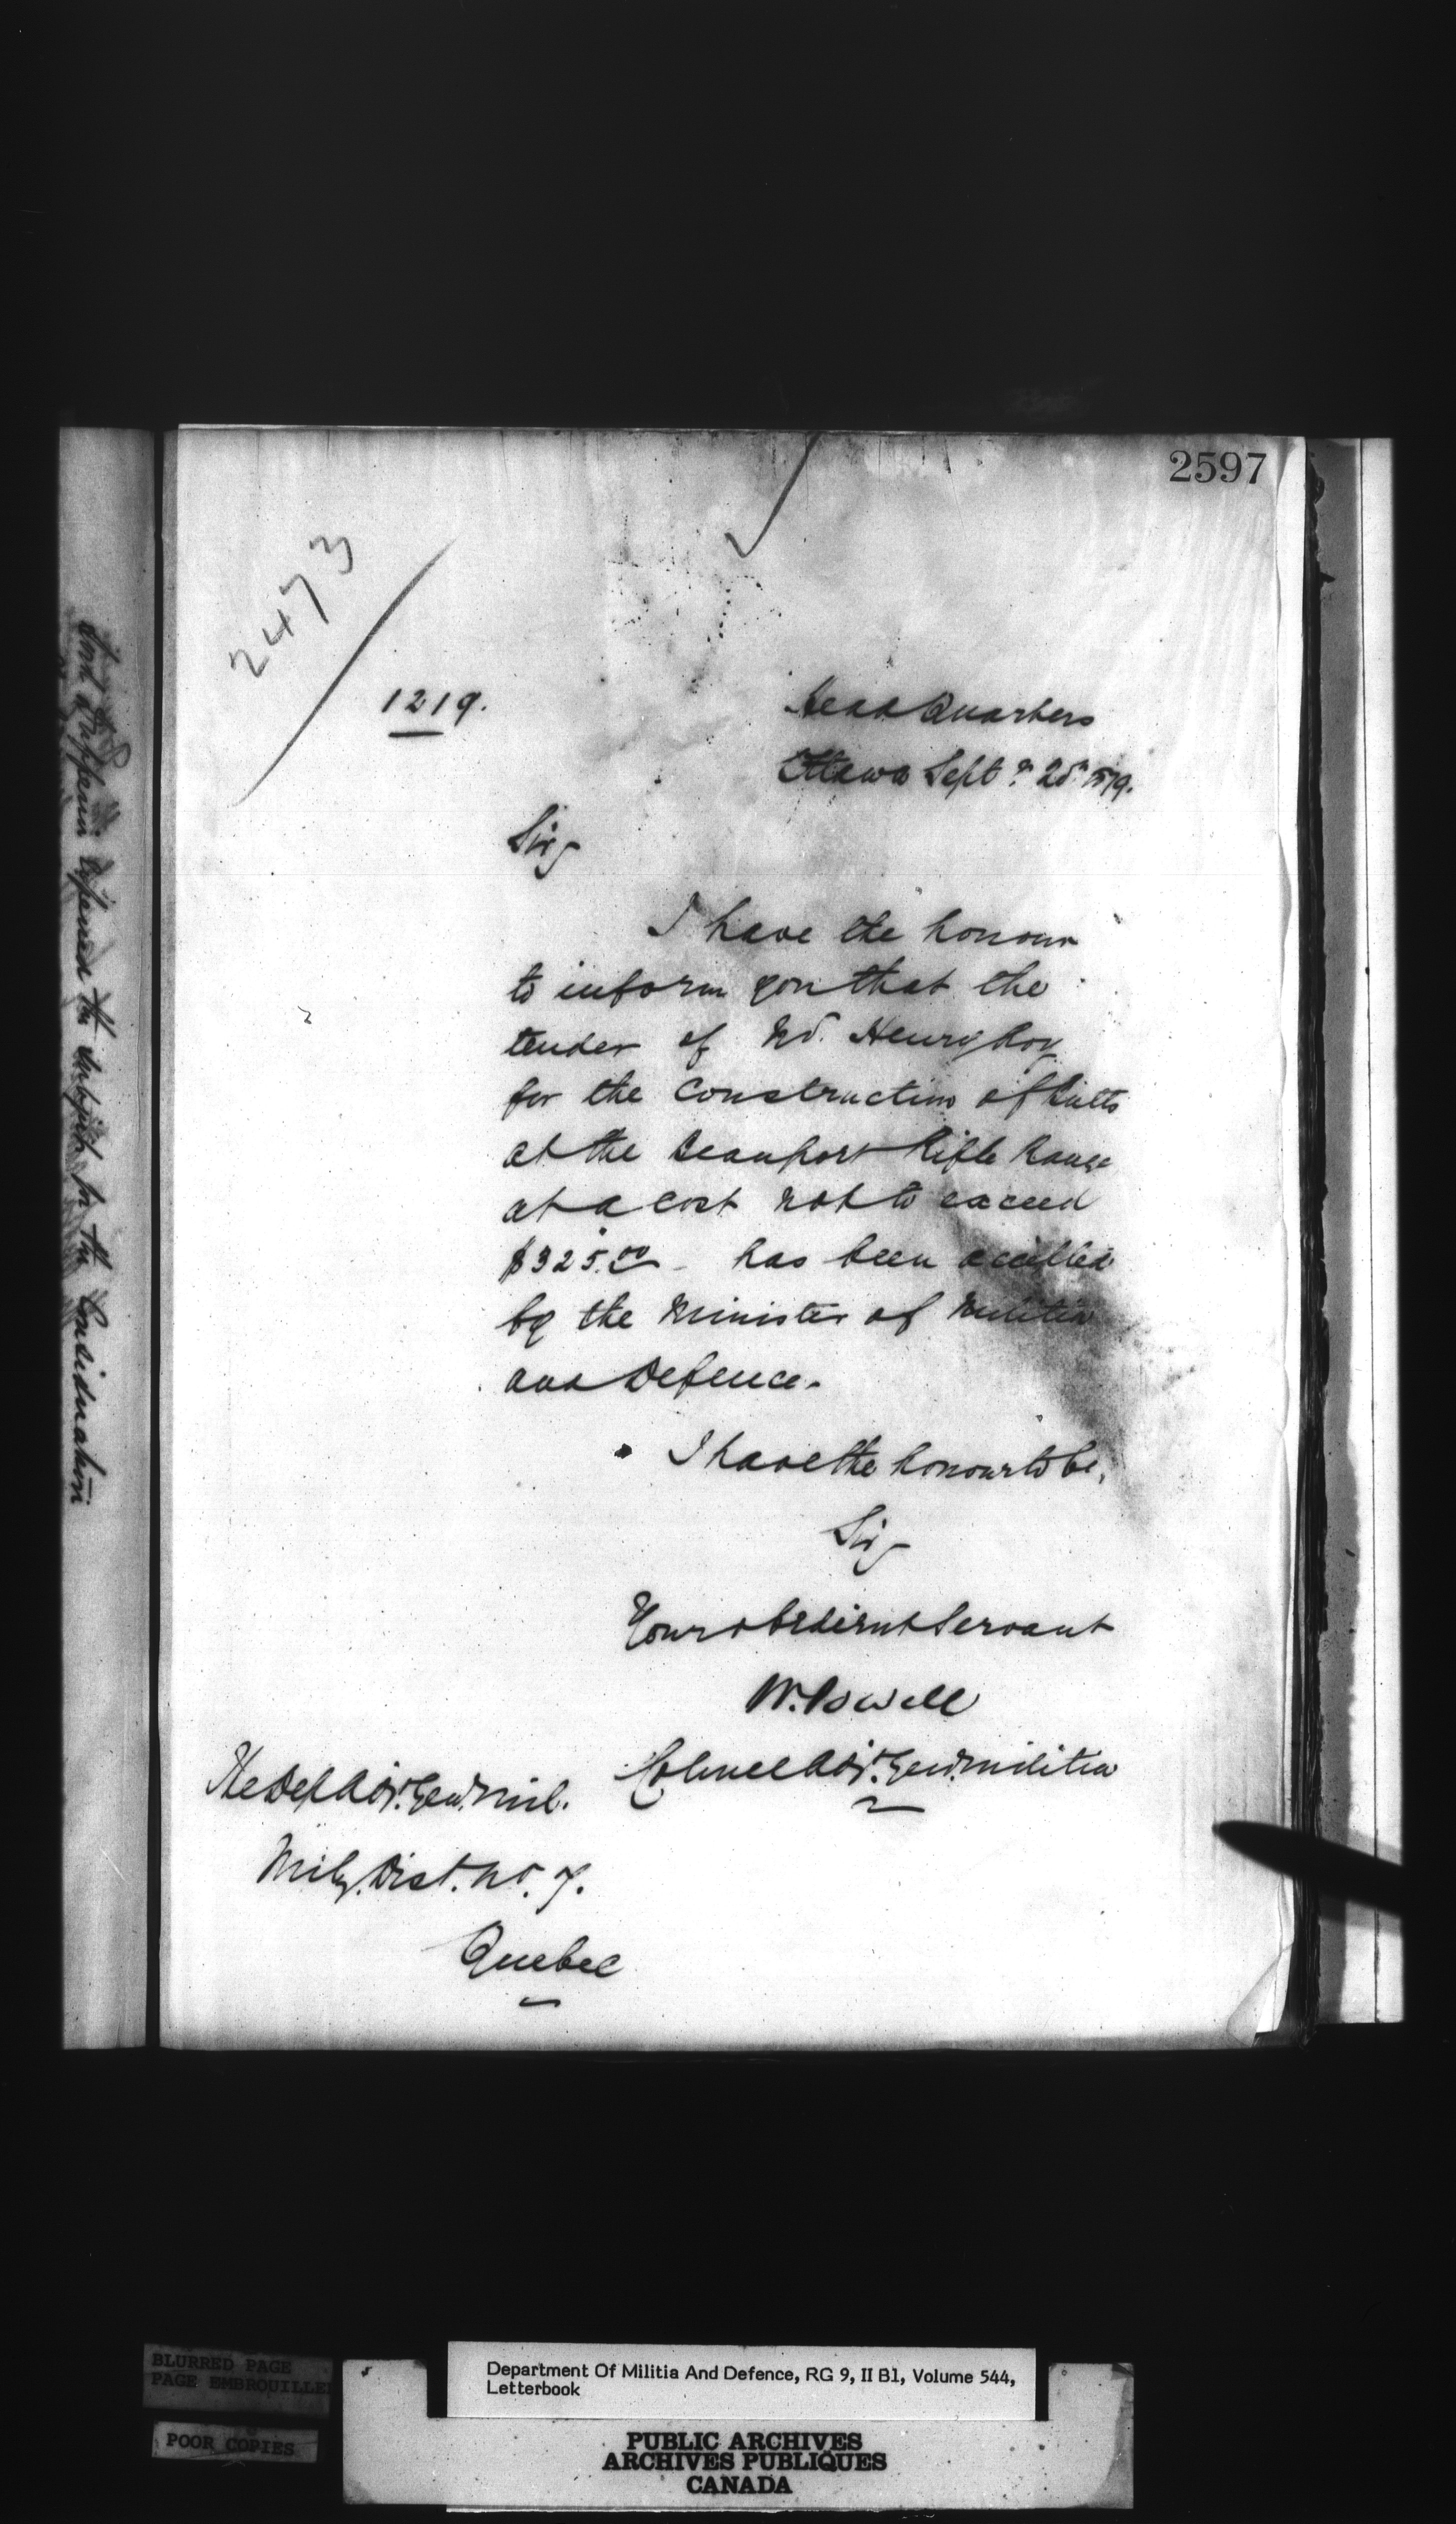 2597
2473
1219.
Head Quarters
Ottawa Sept.r 25th 1879.
Sir,
I have the honour
to inform you that the
tender of Mr. Henry Roy
for the construction of Butts
at the Beauport Rifle Range
at a cost not to exceed
$325.00 - has been accepted
by the Minister of Militia
and Defence.
I have the honour to be,
Sir,
Your obedient Servant
W. Powell
Colonel Adjt. Genl. Militia
The Dep. Adjt. Genl. Mil.
Mily. Dist. No. 7.
Quebec
the subject for the Consideration
BLURRED PAGE
PAGE EMBROUILLEE
POOR COPIES
Department Of Militia And Defence, RG 9, II B1, Volume 544,
Letterbook
PUBLIC ARCHIVES
ARCHIVES PUBLIQUES
CANADA